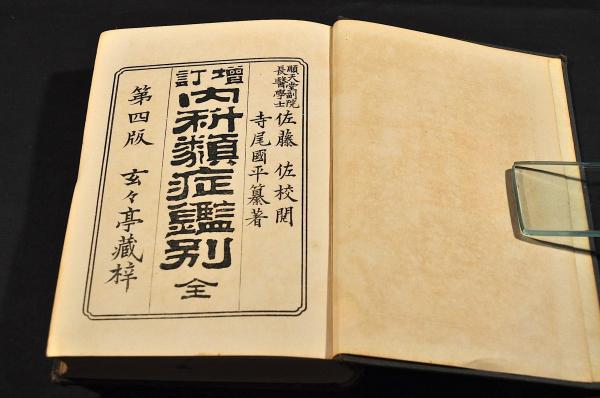 順天堂副院
長醫學士
佐藤佐校閲
寺尾國平纂著
增訂
内科類症鑑別 全
第四版 玄々亭藏梓